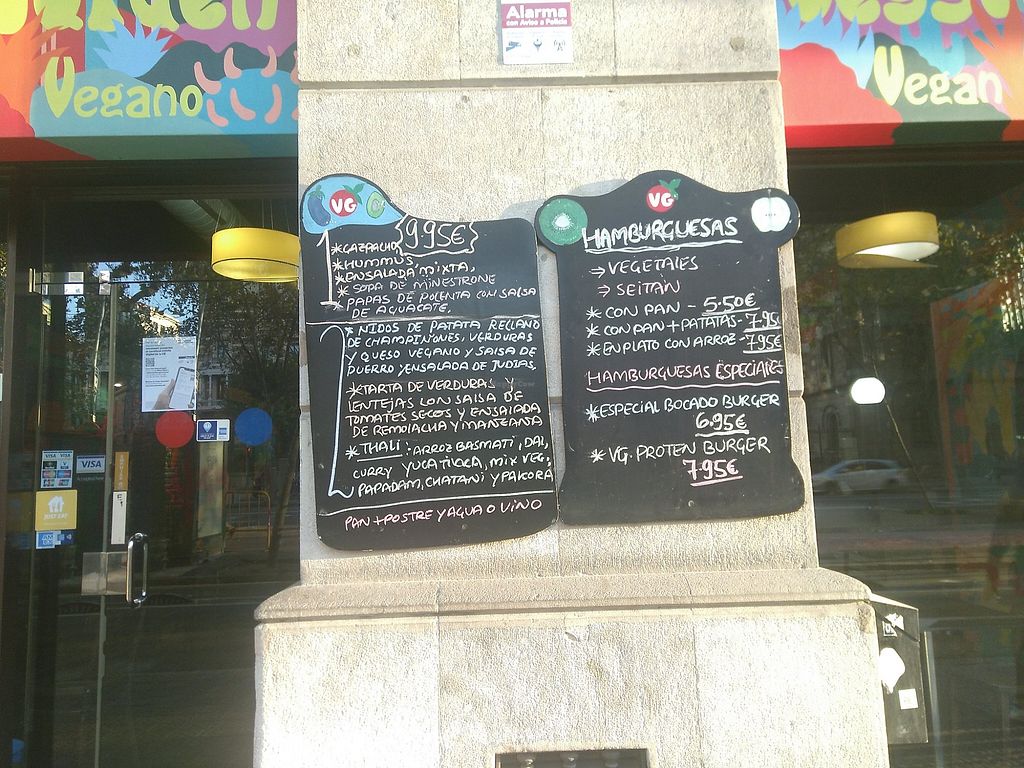 Vegano
Alarma
con Aviso a Policía
Vegan
VG
9.95€
1
*GAZPACHO
*HUMMUS,
*ENSALADA MIXTA,
*SOPA DE MINESTRONE
*PAPAS DE POLENTA CON SALSA
DE AGUACATE.
2
*NIDOS DE PATATA RELLENO
DE CHAMPIÑONES, VERDURAS
Y QUESO VEGANO Y SALSA DE
PUERRO; ENSALADA DE JUDIAS.
*TARTA DE VERDURAS Y
LENTEJAS CON SALSA DE
TOMATES SECOS Y ENSALADA
DE REMOLACHA Y MANZANA
*THALI: ARROZ BASMATI, DAL,
CURRY YUCATIUCA, MIX VEG,
PAPADAM, CHATANI Y PAKORA
PAN + POSTRE Y AGUA O VINO
VG
HAMBURGUESAS
⇒ VEGETALES
⇒ SEITAN
*CON PAN - 5.50€
*CON PAN + PATATAS - 7.95
*EN PLATO CON ARROZ - 7.95€
HAMBURGUESAS ESPECIALES
*ESPECIAL BOCADO BURGER
6.95€
*VG. PROTEN BURGER
7.95€
VISA
JUST EAT